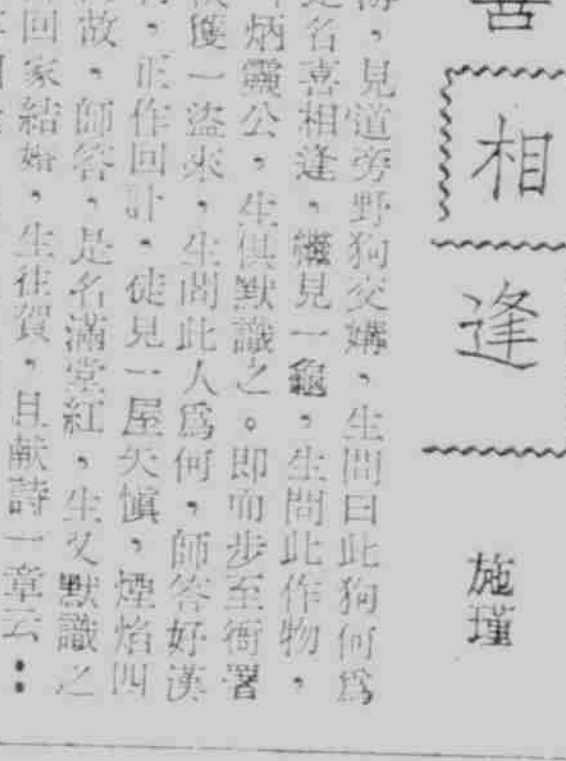 喜相逢
施瑾
游，見道旁野狗交媾，生問曰此狗何爲
是名喜相逢，繼見一龜，生問此作物，
炳靈公，生俱默識之。即而步至衙署
獲一盜來，生問此人爲何，師答好漢
，正作回計，徒見一屋失愼，煙焰四
故，師答，是名滿堂紅，生又默識之
回家結婚，生往賀，且献詩一章云：